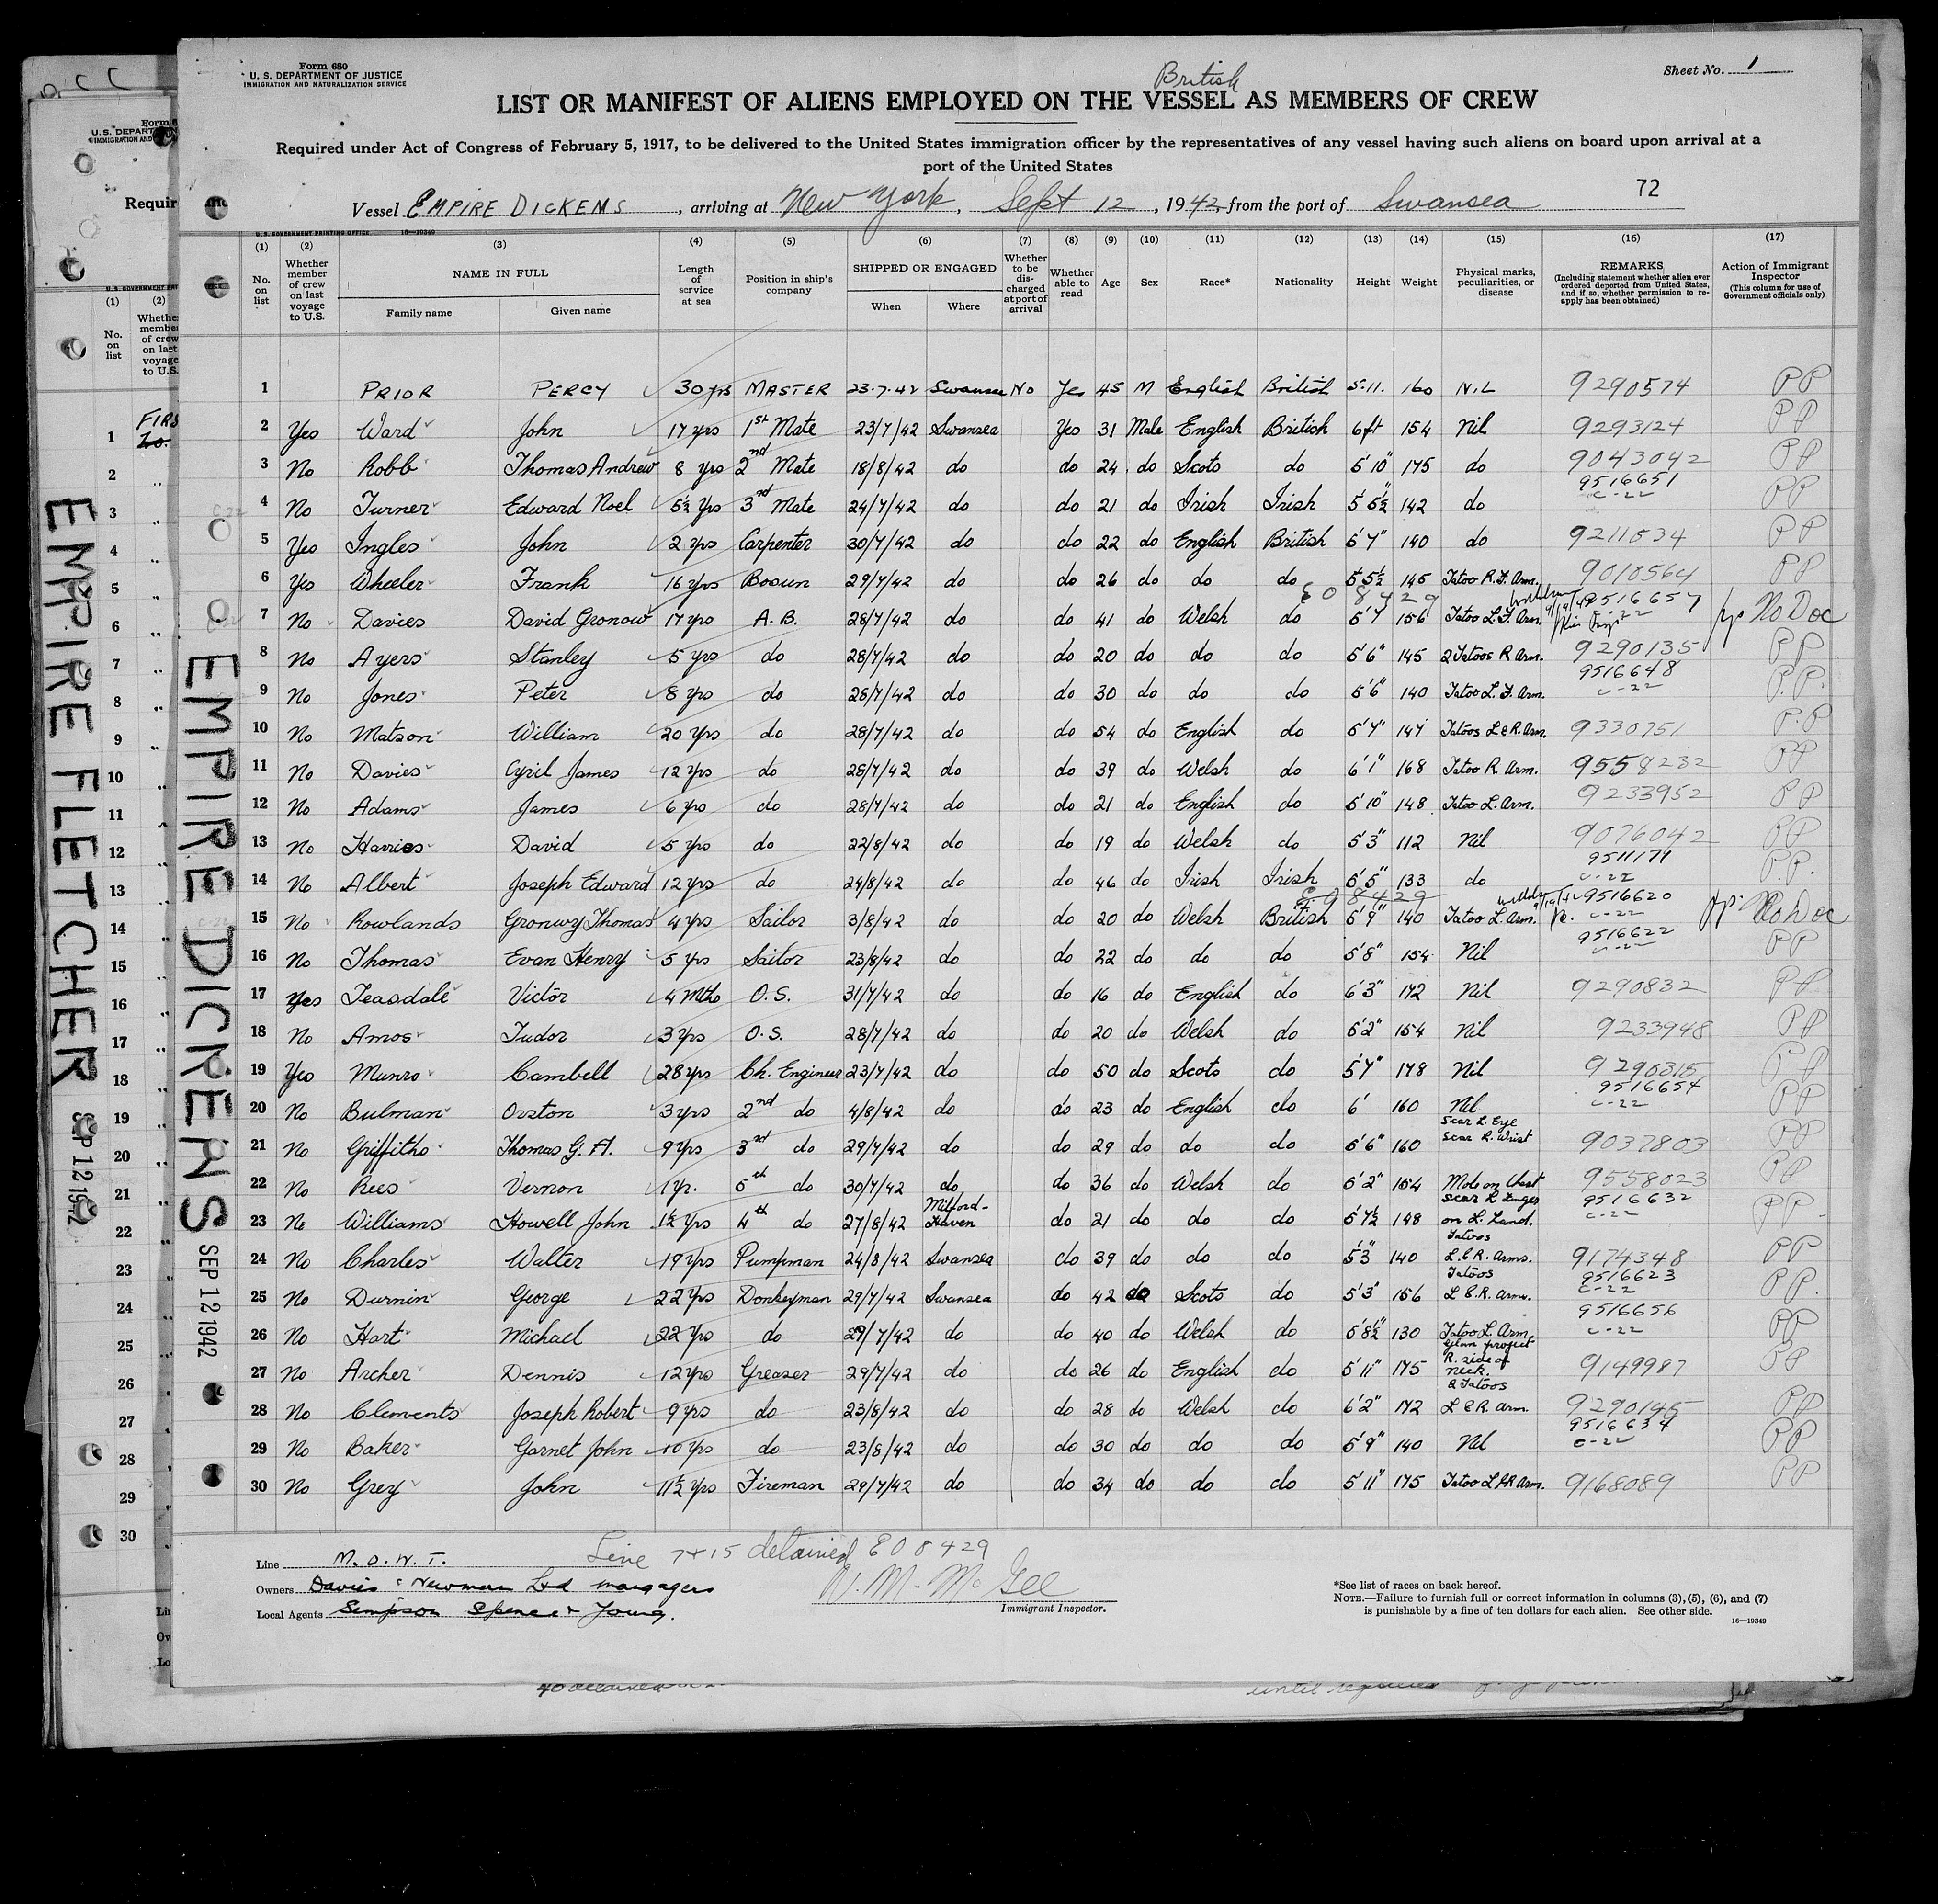 Form 680
U. S. DEPARTMENT OF JUSTICE
IMMIGRATION AND NATURALIZATION SERVICE
Sheet No. 1
British
LIST OR MANIFEST OF ALIENS EMPLOYED ON THE VESSEL AS MEMBERS OF CREW
Required under Act of Congress of February 5, 1917, to be delivered to the United States immigration officer by the representatives of any vessel having such aliens on board upon arrival at a
port of the United States
72
Vessel EMPIRE DICKENS, arriving at New York, Sept 12, 1942, from the port of Swansea
U. S. GOVERNMENT PRINTING OFFICE 16—19349
(1) (2) (3) (4) (5) (6) (7) (8) (9) (10) (11) (12) (13) (14) (15) (16) (17)
No. on list
Whether member of crew on last voyage to U.S.
NAME IN FULL
Family name
Given name
Length of service at sea
Position in ship's company
SHIPPED OR ENGAGED
When
Where
Whether to be discharged at port of arrival
Whether able to read
Age
Sex
Race*
Nationality
Height
Weight
Physical marks, peculiarities, or disease
REMARKS
(Including statement whether alien ever ordered deported from United States, and if so, whether permission to reapply has been obtained)
Action of Immigrant Inspector
(This column for use of Government officials only)
1 PRIOR PERCY 30 yrs MASTER 23.7.42 Swansea No Yes 45 M English British 5.11. 160 NIL 9290574 PP
2 Yes Ward John 17 yrs 1st Mate 23/7/42 Swansea Yes 31 Male English British 6ft 154 Nil 9293124 PP
3 No Robb Thomas Andrew 8 yrs 2nd Mate 18/8/42 do do 24 do Scots do 5'10" 175 do 9043042 PP
4 No Turner Edward Noel 5½ Yrs 3rd Mate 24/7/42 do do 21 do Irish Irish 5'5½" 142 do 9516651 C-22 PP
5 Yes Ingles John 2 yrs Carpenter 30/7/42 do do 22 do English British 5'7" 140 do 9211534 PP
6 Yes Wheeler Frank 16 yrs Bosun 29/7/42 do do 26 do do do 5'5½ 145 Tatoo R.F. Arm. 9010564 PP
7 No Davies David Gronow 17 yrs A. B. 28/7/42 do do 41 do Welsh do 5'7 156 Tatoo L.F. Arm. 9516657 C-22 No Doc
808429
8 No Ayers Stanley 5 yrs do 28/7/42 do do 20 do do do 5'6" 145 2 Tatoos R Arm. 9290135 PP
9 No Jones Peter 8 yrs do 28/7/42 do do 30 do do do 5'6" 140 Tatoo L.F. Arm. 9516648 C-22 P.P.
10 No Matson William 20 yrs do 28/7/42 do do 54 do English do 5'7" 147 Tatoos L & R. Arm. 9330751 P.P
11 No Davies Cyril James 12 Yrs do 28/7/42 do do 39 do Welsh do 6'1" 168 Tatoo R. Arm. 9558232 PP
12 No Adams James 6 yrs do 28/7/42 do do 21 do English do 5'10" 148 Tatoo L. Arm. 9233952 PP
13 No Harries David 5 yrs do 22/8/42 do do 19 do Welsh do 5'3" 112 Nil 9076042 PP
14 No Albert Joseph Edward 12 yrs do 24/8/42 do do 46 do Irish Irish 5'5" 133 do 9511171 C-22 P.P.
15 No Rowlands Gronwy Thomas 4 yrs Sailor 3/8/42 do do 20 do Welsh British 5'9" 140 Tatoo L. Arm. 9516620 C-22 No Doc
808429
16 No Thomas Evan Henry 5 yrs Sailor 23/8/42 do do 22 do do do 5'8" 154 Nil 9516622 C-22 PP
17 Yes Teasdale Victor 4 Mths O.S. 31/7/42 do do 16 do English do 6'3" 172 Nil 9290832 PP
18 No Amos Tudor 3 yrs O.S. 28/7/42 do do 20 do Welsh do 5'2" 154 Nil 9233948 PP
19 Yes Munro Cambell 28 yrs Ch. Engineer 23/7/42 do do 50 do Scots do 5'7" 178 Nil 9290315 PP
20 No Bulman Orston 3 yrs 2nd do 4/8/42 do do 23 do English do 6' 160 Nil 9516654 C-22 PP
21 No Griffiths Thomas G. H. 9 yrs 3rd do 29/7/42 do do 29 do do do 5'6" 160 Scar L. Eye Scar R. Wrist 9037803 PP
22 No Rees Vernon 1 yr. 5th do 30/7/42 do do 36 do Welsh do 5'2" 154 Mole on Chest 9558023 PP
23 No Williams Howell John 1½ yrs 4th do 27/8/42 Milford-Haven do 21 do do do 5'7½ 148 Scar R Finger on L. Hand. 9516632 C-22 PP
24 No Charles Walter 19 yrs Pumpman 24/8/42 Swansea do 39 do do do 5'3" 140 Tatoos L. & R. Arms. 9174348 PP
25 No Durnin George 22 Yrs Donkeyman 29/7/42 Swansea do 42 do Scots do 5'3" 156 Tatoos L. & R. Arms. 9516623 C-22 PP.
26 No Hart Michael 22 yrs do 29/7/42 do do 40 do Welsh do 5'8½" 130 Tatoo L. Arm. 9516656 C-22 PP
27 No Archer Dennis 12 yrs Greaser 29/7/42 do do 26 do English do 5'11" 175 R. side of neck. 9149987 PP
28 No Clements Joseph Robert 9 yrs do 23/8/42 do do 28 do Welsh do 6'2" 172 2 Tatoos L & R. Arm. 9290145 PP
29 No Baker Garnet John 10 yrs do 23/8/42 do do 30 do do do 5'9" 140 Nil 9516634 C-22 PP
30 No Grey John 11½ yrs Fireman 29/7/42 do do 34 do do do 5'11" 175 Tatoo L & R Arm. 9168089 PP
Line M.O.W.T.
Line 7 + 15 detained 808429
Owners Davies & Newman Ltd managers
Local Agents Simpson Spence & Young.
W. M. McGee
Immigrant Inspector.
*See list of races on back hereof.
NOTE.—Failure to furnish full or correct information in columns (3), (5), (6), and (7)
is punishable by a fine of ten dollars for each alien. See other side.
16—19349
EMPIRE DICKENS
SEP 12 1942
EMPIRE FLETCHER
SEP 12 1942
Form 6
U. S. DEPART
IMMIGRATION AND
Requir
(1) (2)
No. on list
FIRS
1
2
3
4
5
6
7
8
9
10
11
12
13
14
15
16
17
18
19
20
21
22
23
24
25
26
27
28
29
30
until